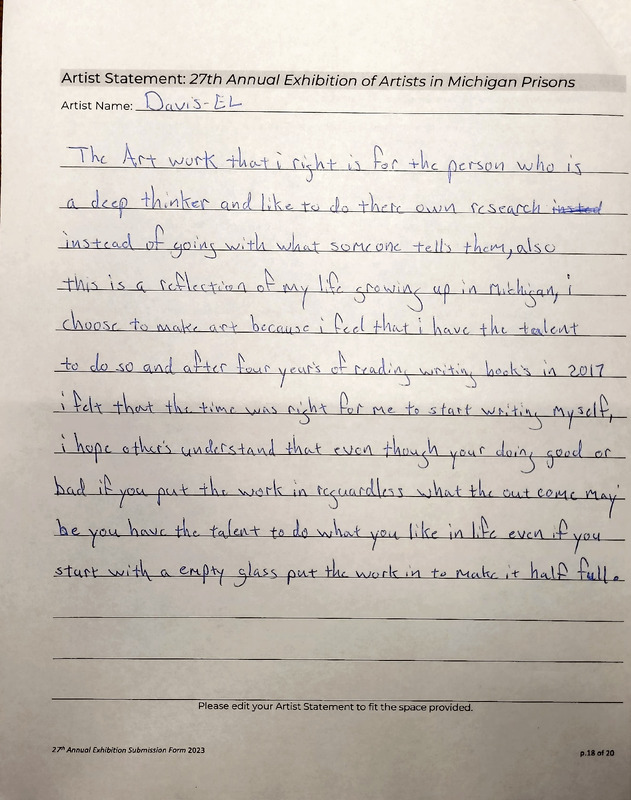 Artist Statement: 27th Annual Exhibition of Artists in Michigan Prisons
Artist Name: Davis-EL
The Art work that i right is for the person who is
a deep thinker and like to do there own research insted
instead of going with what someone tells them, also
this is a reflection of my life growing up in Michigan, i
choose to make art because i feel that i have the talent
to do so and after four year's of reading writing book's in 2017
i felt that the time was right for me to start writing myself,
i hope other's understand that even though your doing good or
bad if you put the work in reguardless what the out come may
be you have the talent to do what you like in life even if you
start with a empty glass put the work in to make it half full.
Please edit your Artist Statement to fit the space provided.
27th Annual Exhibition Submission Form 2023
p.18 of 20